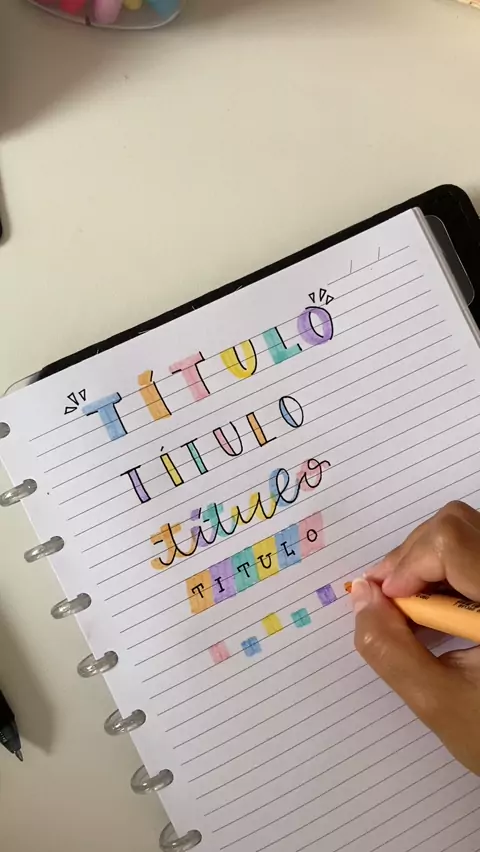 TÍTULO
TÍTULO
título
TITULO